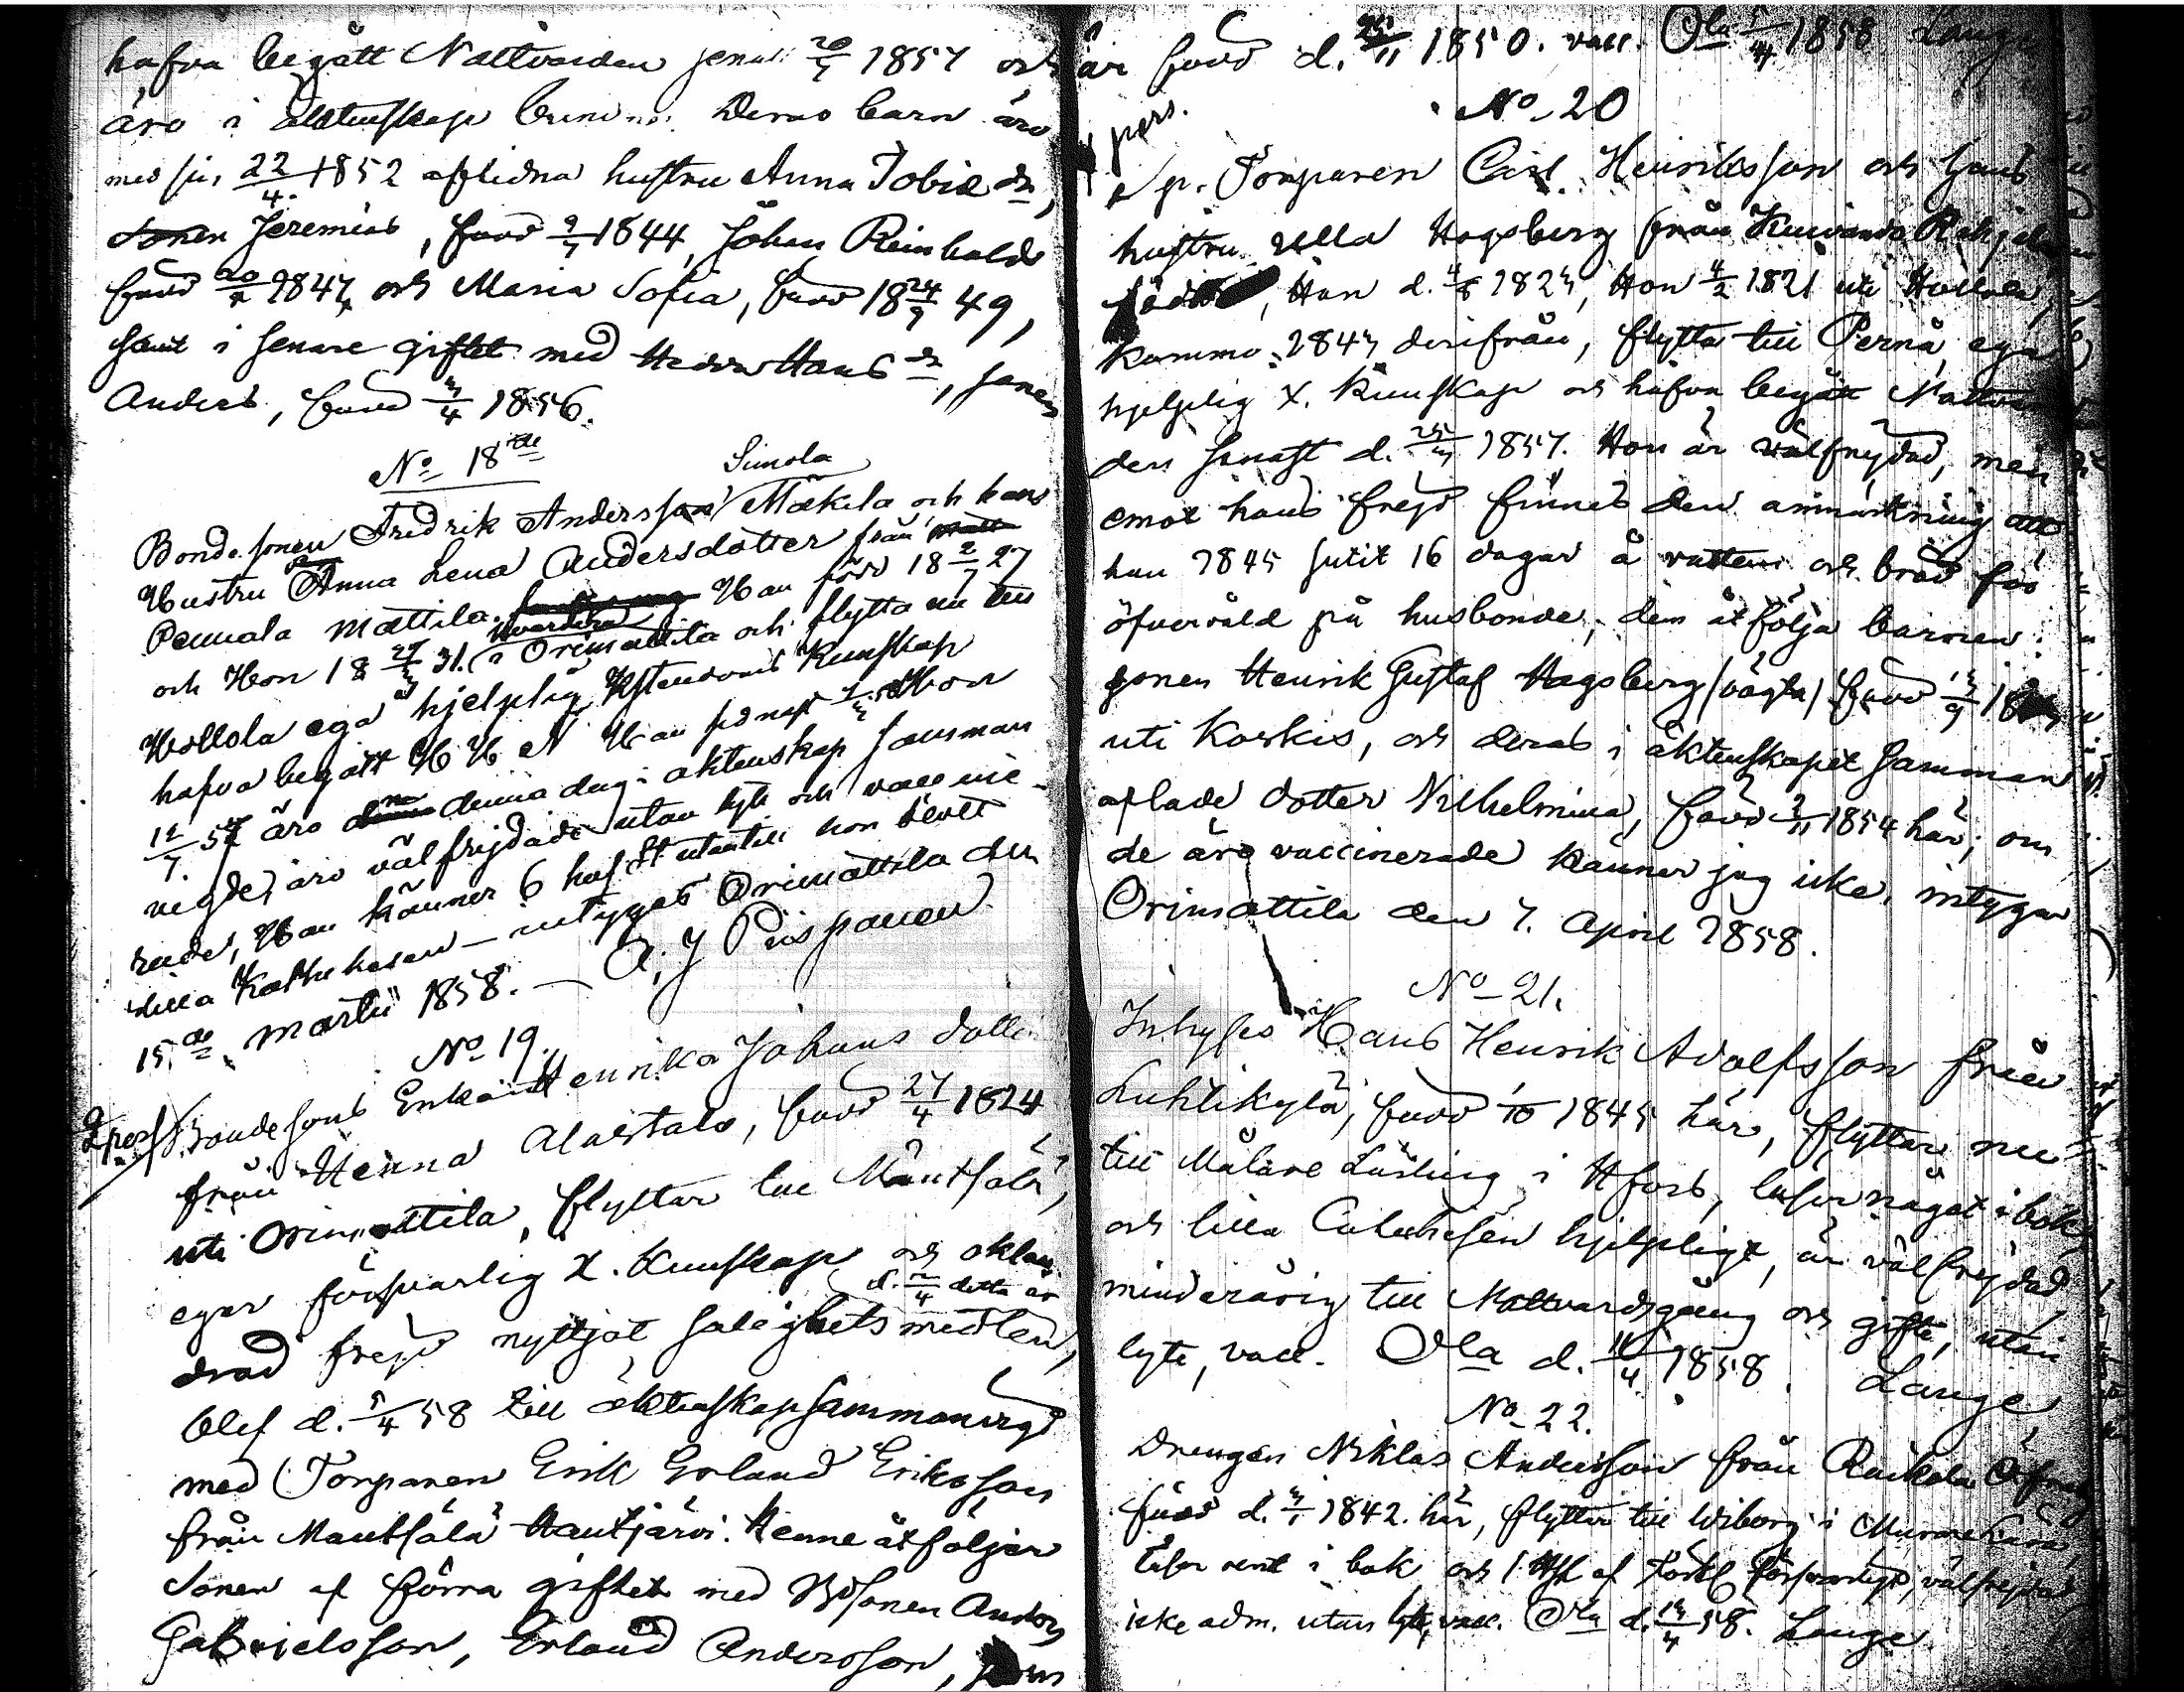 hafva begått Nattvarden senast 20/7 1857 och
äro i äktenskap bundne. Deras barn äro
med sin 22/4 1852 aflidna hustru Anna Tobie dr,
Sonen Jeremias, född 9/7 1844, Johan Reinhold
född 20/2 1847 och Maria Sofia, född 18 24/9 49,
samt i senare giftet med Hedvig Hans dr, sonen
Anders, född 3/4 1856.
No 18de
Simola
Bondesonen Fredrik Andersson Mäkilä och hans
Hustru Anna Lena Andersdotter från
Pennala Mattila. Han född 18 2/7 27
och Hon 18 27/3 31. i Orimattila och flytta nu till
Hollola ega hjelplig Kristendoms Kunskap
hafva begått H H N Han sednast Hon
äro denna dag i äktenskap samman
vigde, äro välfrejdade utan lyte och vaccine-
rade, Han känner 6 huf. St utantill hon
lilla Kathekesen – intygas Orimattila den
15de Martii 1858. – A. J Piispanen
No 19.
2 pers. Bondesons Enkan Henrika Johans dotter
från Henna Alastalo, född 27/4 1824
uti Orimattila, flyttar till Mäntsälä,
eger försvarlig X. Kunskap och oklan-
d. 2/4 detta år
drad frejd nyttjat salighetsmedlen,
blef d. 5/4 58 till äktenskap sammanvigd
med Torparen Erik Erland Eriksson
från Mäntsälä Hautjärvi. Henne åtföljer
Sonen af förra giftet med Bdsonen Anders
Gabrielsson, Erland Andersson, som
är född d. 25/11 1850. vacc. Ola 5/4 1858 Lange
No 20
4 pers.
Sp. Torparen Carl Henriksson och hans
hustru Ulla Hagsberg från Kuivando
födde, Han d. 4/8 1824, Hon 4/2 1821 uti Hollola,
komme 1847 derifrån, flytta till Pernå, ega
hjelplig X. Kunskap och hafva begått Nattvar
den senast d. 1857. Hon är välfrejdad, men
emot hans frejd finnes den anmärkning att
han 1845 sutit 16 dagar å vatten och bröd för
öfvervåld på husbonde; dem åtfölja barnen:
sonen Henrik Gustaf Hagsberg (oägta) född
uti Koskis, och deras i äktenskapet samman
aflade dotter Vilhelmina, född 2/11 1854 här; om
de äro vaccinerade känner jag icke, intygar
Orimattila den 7. April 1858.
No 21.
Inhyses Hans Henrik Adolfsson från
Luhtikylä, född 1/10 1845 här, flyttar nu
till Målare Lüsling i Hfors, läser något i bok,
och lilla Catechesen hjelpligt, är välfrejdad,
minderårig till Nattvardsgång och gifte, utan
lyte, vacc. Ola d. 11/4 1858. Lange
No 22.
Drengen Niklas Andersson från Räikälä
född d. 3/1 1842. här, flyttar till Wiborg i
läser rent i bok och försvarligt, välfrejdad,
icke adm. utan lyte, vacc. Ola d. 13/4 58. Lange